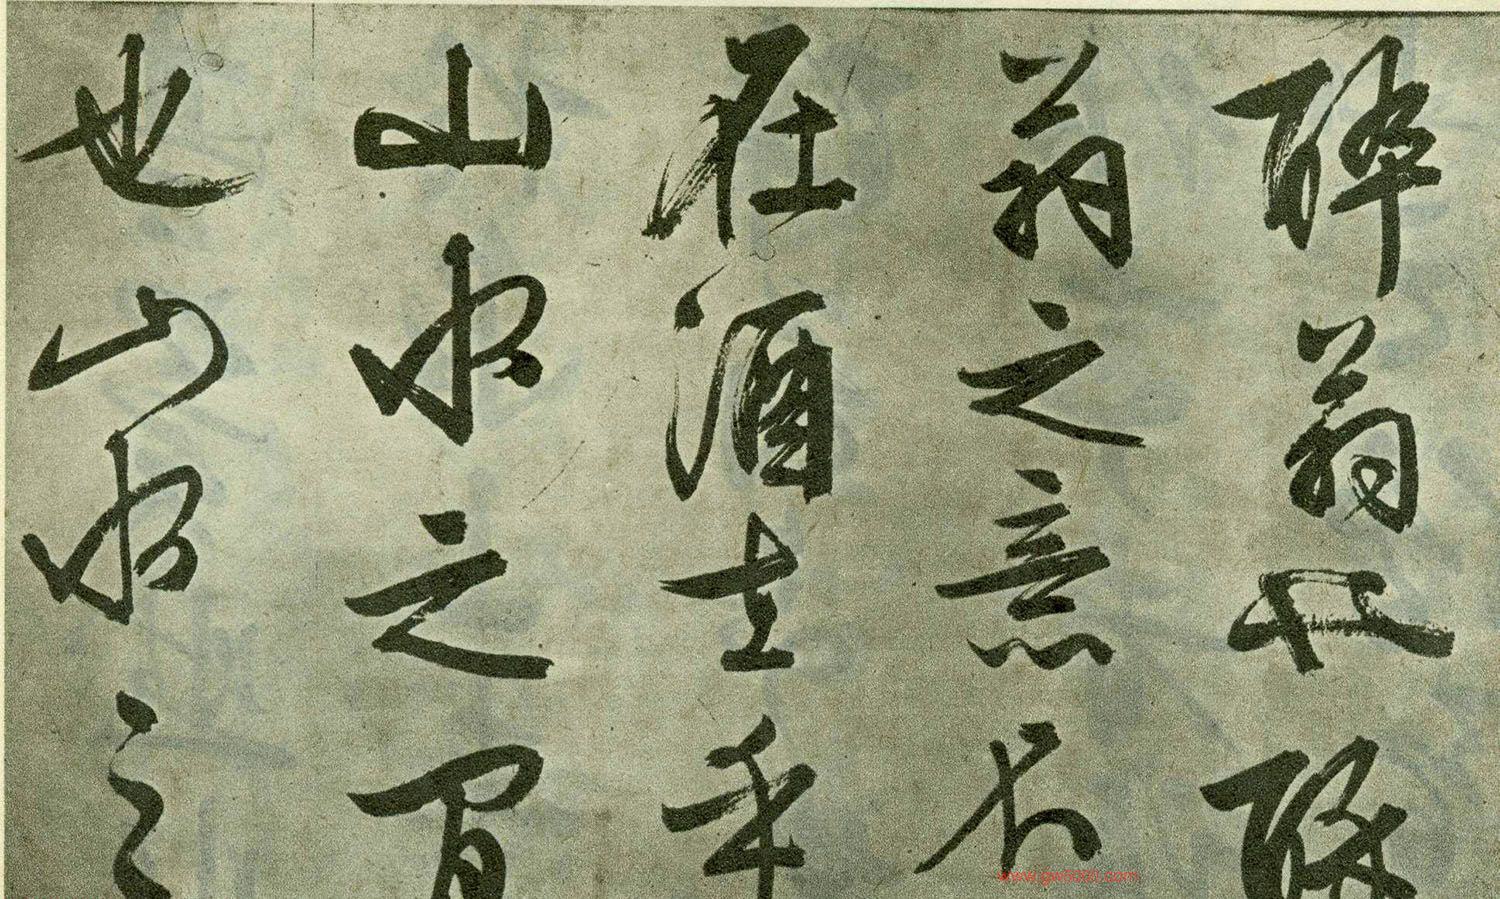 醉翁也醉
翁之意不
在酒在乎
山水之間
也山水之
www.gw5000.com